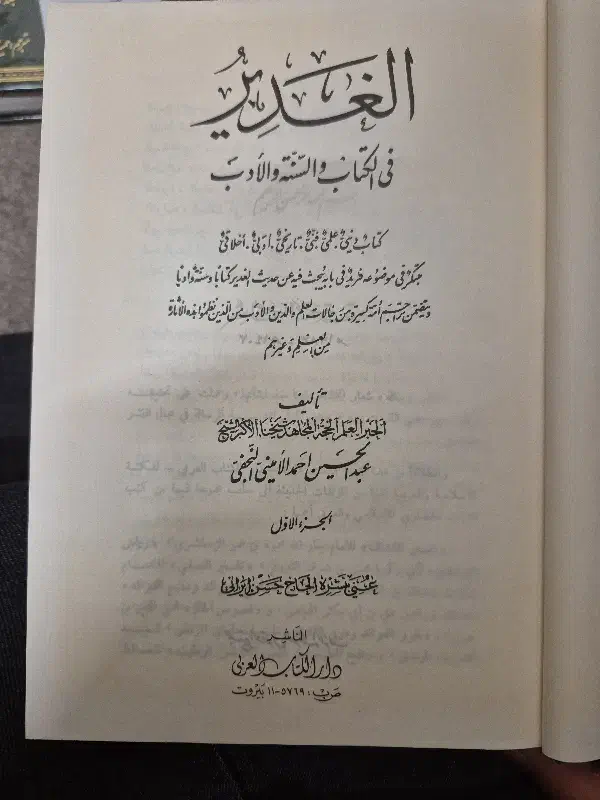 الغدير
في الكتاب والسنة والأدب
كتاب ديني. علمي. فني. تاريخي. أدبي. أخلاقي
مبتكر في موضوعه فريد في بابه يبحث فيه عن حديث الغدير كتابا وسنة وأدبا
ويتضمن تراجم أمة كبيرة من رجالات العلم والدين والأدب من الذين نظموا هذه الأثارة
من العلم وغيرهم
تأليف
الحبر العلم الحجة المجاهد شيخنا الأكبر الشيخ
عبد الحسين احمد الأميني النجفي
الجزء الأول
عني بنشره الحاج حسن ايراني
الناشر
دار الكتاب العربي
ص.ب: ٥٧٦٩-١١ بيروت